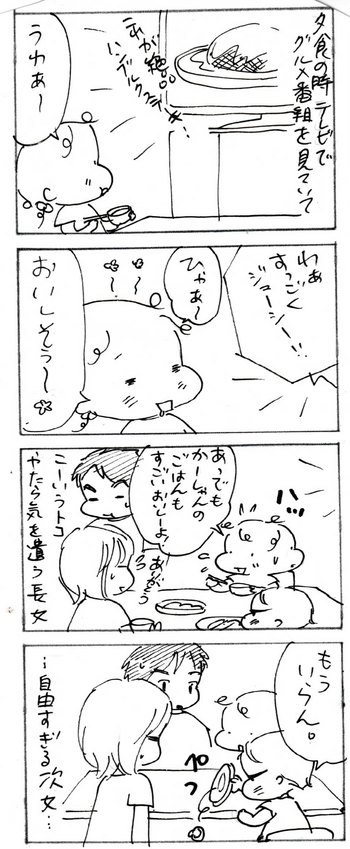 夕食の時テレビで
グルメ番組を見ていて
これが絶品
ハンブルクステーキ…
うわぁ〜
わぁ
すっごく
ジューシー!!
ひゃぁ〜
おいしそう〜
ハッ
あっでも
かーしゃんの
ごはんも
すごいおいしーよ!
ありがとう
こーいうトコ
やたら気を遣う長女
もう
いらん。
ペっ
…自由すぎる次女…